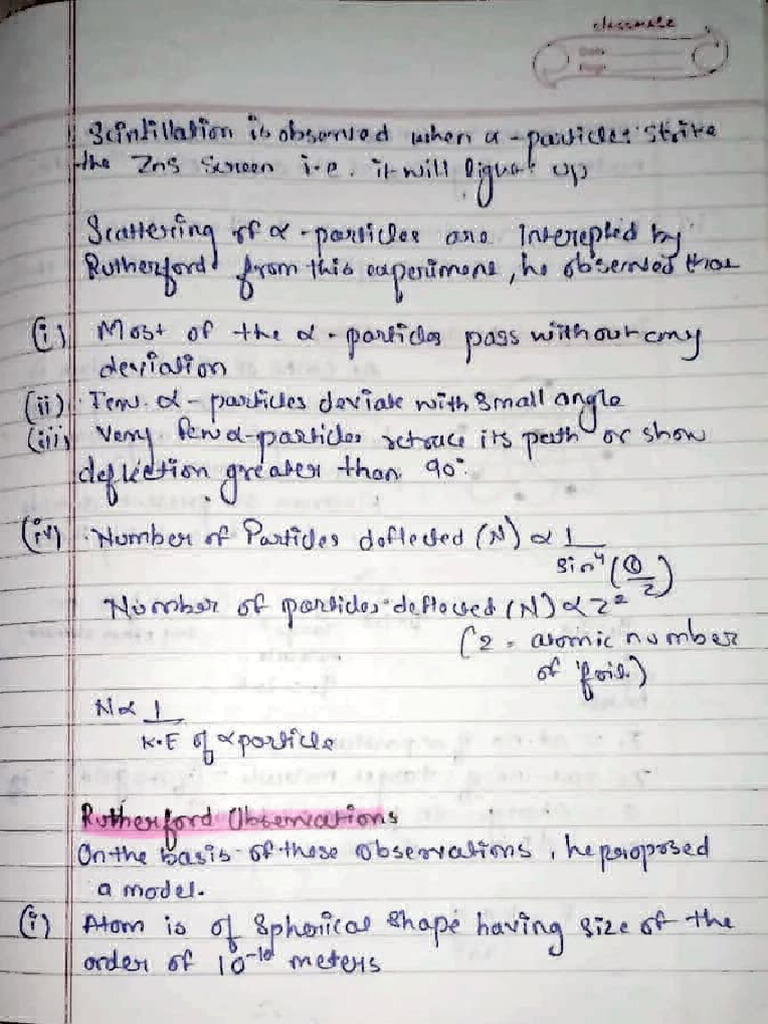 classmate
Date
Page
Scintillation is observed when α-particles strike
the ZnS Screen i.e. it will lignt up
Scattering of α-particles are interepted by
Rutherford from this experiment, he observed that
(i) Most of the α-particles pass without any
deviation
(ii) Few α-particles deviate with small angle
(iii) Very few α-particles retrace its path or show
deflection greater than 90°.
(iv) Number of Particles deflected (N) ∝ 1
sin⁴(θ/2)
Number of particles deflected (N) ∝ Z²
(Z = atomic number
of foil)
N ∝ 1
K.E of α particle
Rutherford Observations
On the basis of these observations, he proposed
a model.
(i) Atom is of spherical shape having size of the
order of 10⁻¹⁰ meters